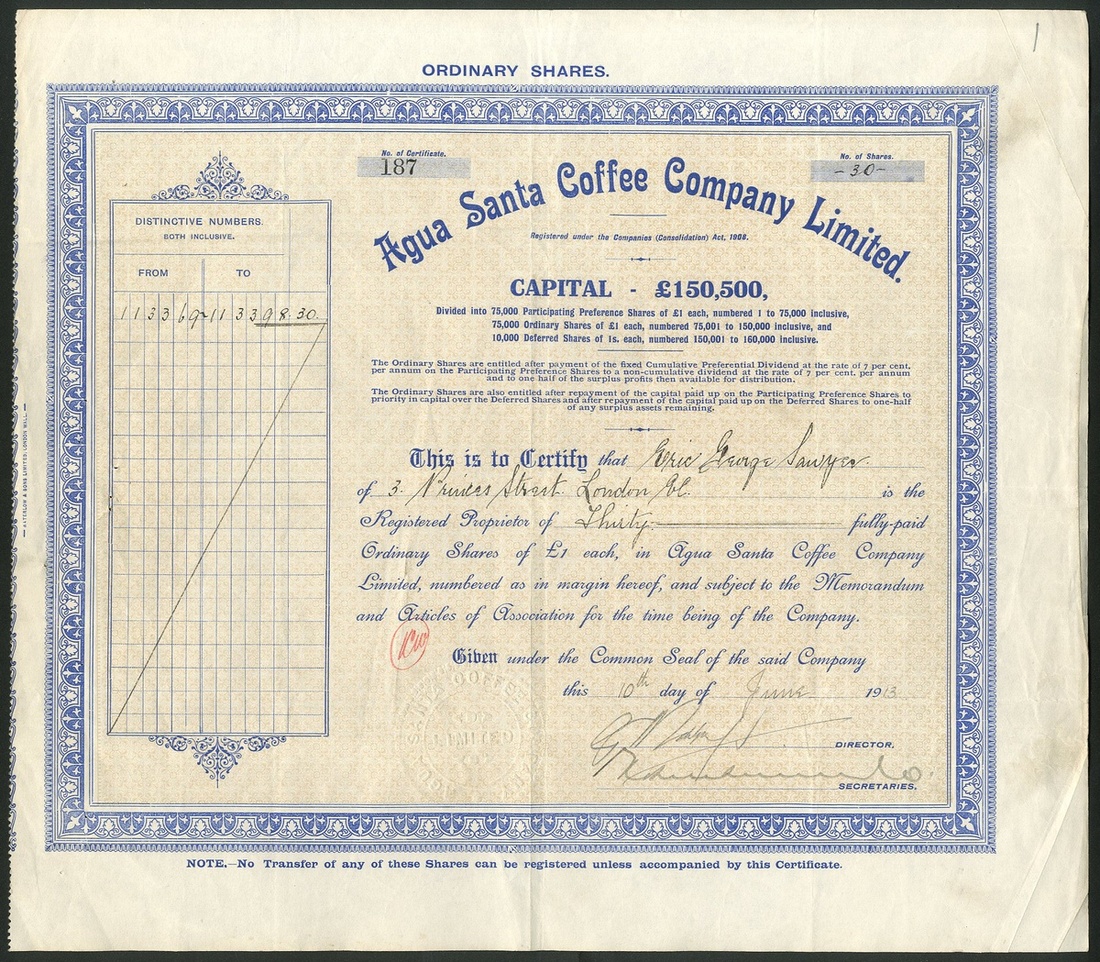 1
ORDINARY SHARES.
No. of Certificate.
187
No. of Shares.
-30-
Agua Santa Coffee Company Limited.
Registered under the Companies (Consolidation) Act, 1908.
CAPITAL - £150,500,
Divided into 75,000 Participating Preference Shares of £1 each, numbered 1 to 75,000 inclusive,
75,000 Ordinary Shares of £1 each, numbered 75,001 to 150,000 inclusive, and
10,000 Deferred Shares of 1s. each, numbered 150,001 to 160,000 inclusive.
The Ordinary Shares are entitled after payment of the fixed Cumulative Preferential Dividend at the rate of 7 per cent.
per annum on the Participating Preference Shares to a non-cumulative dividend at the rate of 7 per cent. per annum
and to one half of the surplus profits then available for distribution.
The Ordinary Shares are also entitled after repayment of the capital paid up on the Participating Preference Shares to
priority in capital over the Deferred Shares and after repayment of the capital paid up on the Deferred Shares to one-half
of any surplus assets remaining.
DISTINCTIVE NUMBERS.
BOTH INCLUSIVE.
FROM TO
113369 - 113398 30
This is to Certify that Eric George Sawyer.
of 3. Princes Street. London E.C. is the
Registered Proprietor of Thirty fully-paid
Ordinary Shares of £1 each, in Agua Santa Coffee Company
Limited, numbered as in margin hereof, and subject to the Memorandum
and Articles of Association for the time being of the Company.
Given under the Common Seal of the said Company
this 10th day of June 1913
DIRECTOR.
SECRETARIES.
WATERLOW & SONS LIMITED, LONDON WALL.
NOTE.—No Transfer of any of these Shares can be registered unless accompanied by this Certificate.